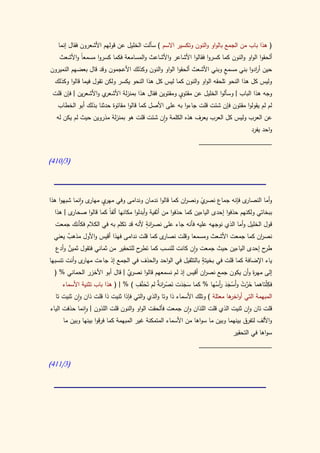 ( هذا باب من الجمع بالواو والنون وتكسير الاسم ) سألت الخليل عن قولهم الأشعرون فقال إنما
ألحقوا الواو والنون كما كسروا فقالوا الأشاعر والأشاعث والمسامعة فكما كسروا مسمعاً والأشعث
حين أرادوا بني مسمع وبني الأشعث ألحقوا الواو والنون وكذلك الأعجمون وقد قال بعضهم النميرون
وليس كل هذا النحو تلحقه الواو والنون كما ليس كل هذا النحو يكسر ولكن تقول فيما قالوا وكذلك
وجه هذا الباب | وسألوا الخليل عن مقتوي ومقتوين فقال هذا بمنزلة الأشعري والأشعرين | فإن قلت
لم لم يقولوا مقتون فإن شئت قلت جاءوا به على الأصل كما قالوا مقاتوة حدثنا بذلك أبو الخطاب
عن العرب وليس كل العرب يعرف هذه الكلمة وإن شئت قلت هو بمنزلة مذروين حيث لم يكن له
واحد يفرد
(410/3)
وأما النصارى فإنه جماع نصري ونصران كما قالوا ندمان وندامى وفي مهري مهارى وإنما شبهوا هذا
ببخاتي ولكنهم حذفوا إحدى الياءين كما حذفوا من أثفية وأبدلوا مكانها ألفاً كما قالوا صحارى | هذا
قول الخليل وأما الذي نوجهه عليه فأنه جاء على نصرانة لأنه قد تكلم به في الكلام فكأنك جمعت
نصران كما جمعت الأشعث ومسمعا وقلت نصارى كما قلت ندامى فهذا أقيس والأول مذهبٌ يعني
طرح إحدى الياءين حيث جمعت وإن كانت للنسب كما تطرح للتحقير من ثماني فتقول ثمينٌ وأدع
ياء الإضافة كما قلت في بختيةٍ بالتثقيل في الواحد والحذف في الجمع إذ جاءت مهارى وأنت تنسبها
إلى مهرة وأن يكون جمع نصران أقيس إذ لم نسمعهم قالوا نصريٌ | قال أبو الأخزر الحماني % (
فكِلْتاهما خَرَّتْ وأسْجَدَ رأسُها % كما سَجَدَت نَصْرَانةٌ لم تَحَنَّفِ ) % | ( هذا باب تثنية الأسماء
المبهمة التي أواخرها معتلة ) وتلك الأسماء ذا وتا والذي والتي فإذا ثنيت ذا قلت ذان وإن ثنيت تا
قلت تان وإن ثنيت الذي قلت اللذان وإن جمعت فألحقت الواو والنون قلت اللذون | وإنما حذفت الياء
والألف لتفرق بينهما وبين ما سواها من الأسماء المتمكنة غير المبهمة كما فرقوا بينها وبين ما
سواها في التحقير
(411/3)